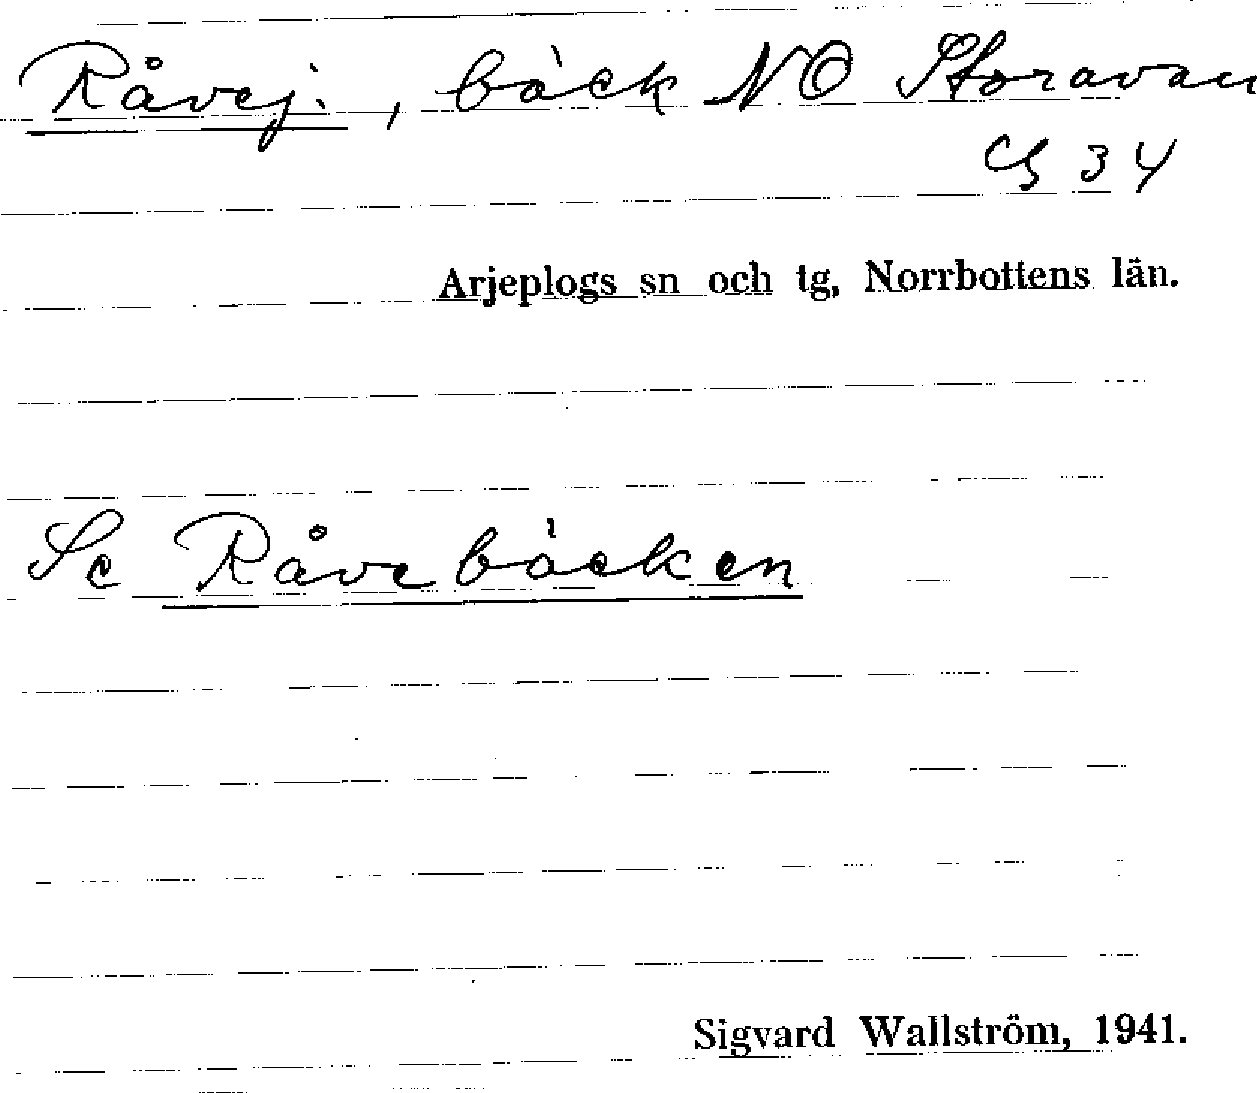 Råvej., bäck NO Storavan
Cg 34
Arjeplogs sn och tg, Norrbottens län.
Se Råvebäcken
Sigvard Wallström, 1941.